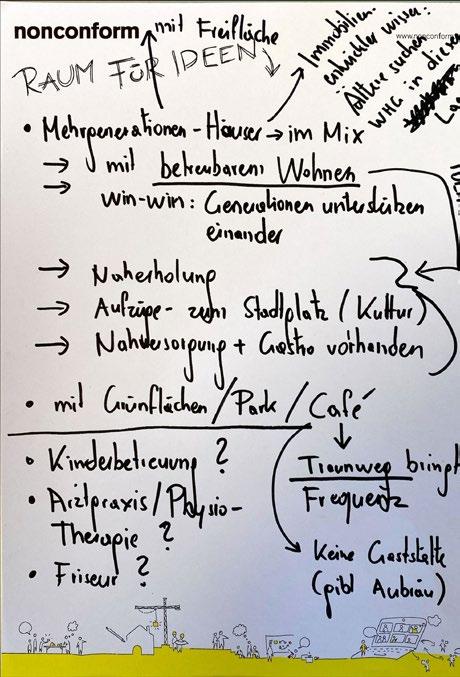 nonconform
mit Freifläche
www.nonconform
RAUM FÜR IDEEN
Immobilien-
entwickler wissen:
Ältere suchen
WHG in dieser
• Mehrgenerationen-Häuser → im Mix
→ mit betreubarem Wohnen
→ win-win: Generationen unterstützen
einander
→ Naherholung
→ Aufzüge - zum Stadtplatz (Kultur)
→ Nahversorgung + Gastro vorhanden
• mit Grünflächen / Park / Café
• Kinderbetreuung ?
• Arztpraxis/Physio-
Therapie ?
• Friseur ?
Traunweg bringt
Frequenz
Keine Gaststätte
(gibt Aubräu)